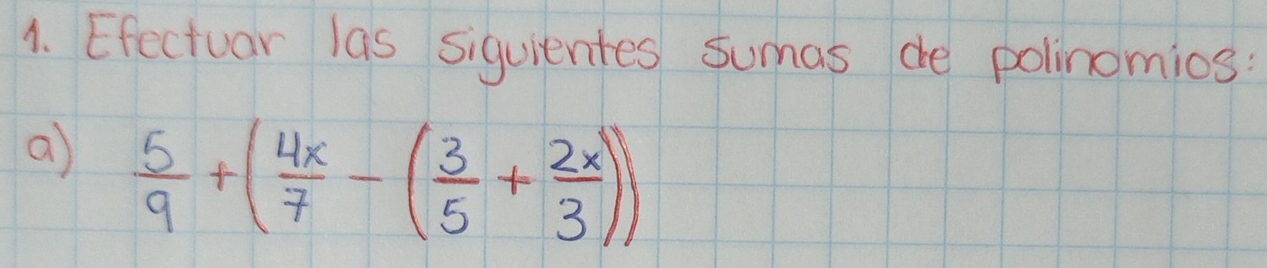 1. Efectuar las siguientes sumas de polinomios:
a) 5/9 + (4x/7 - (3/5 + 2x/3))